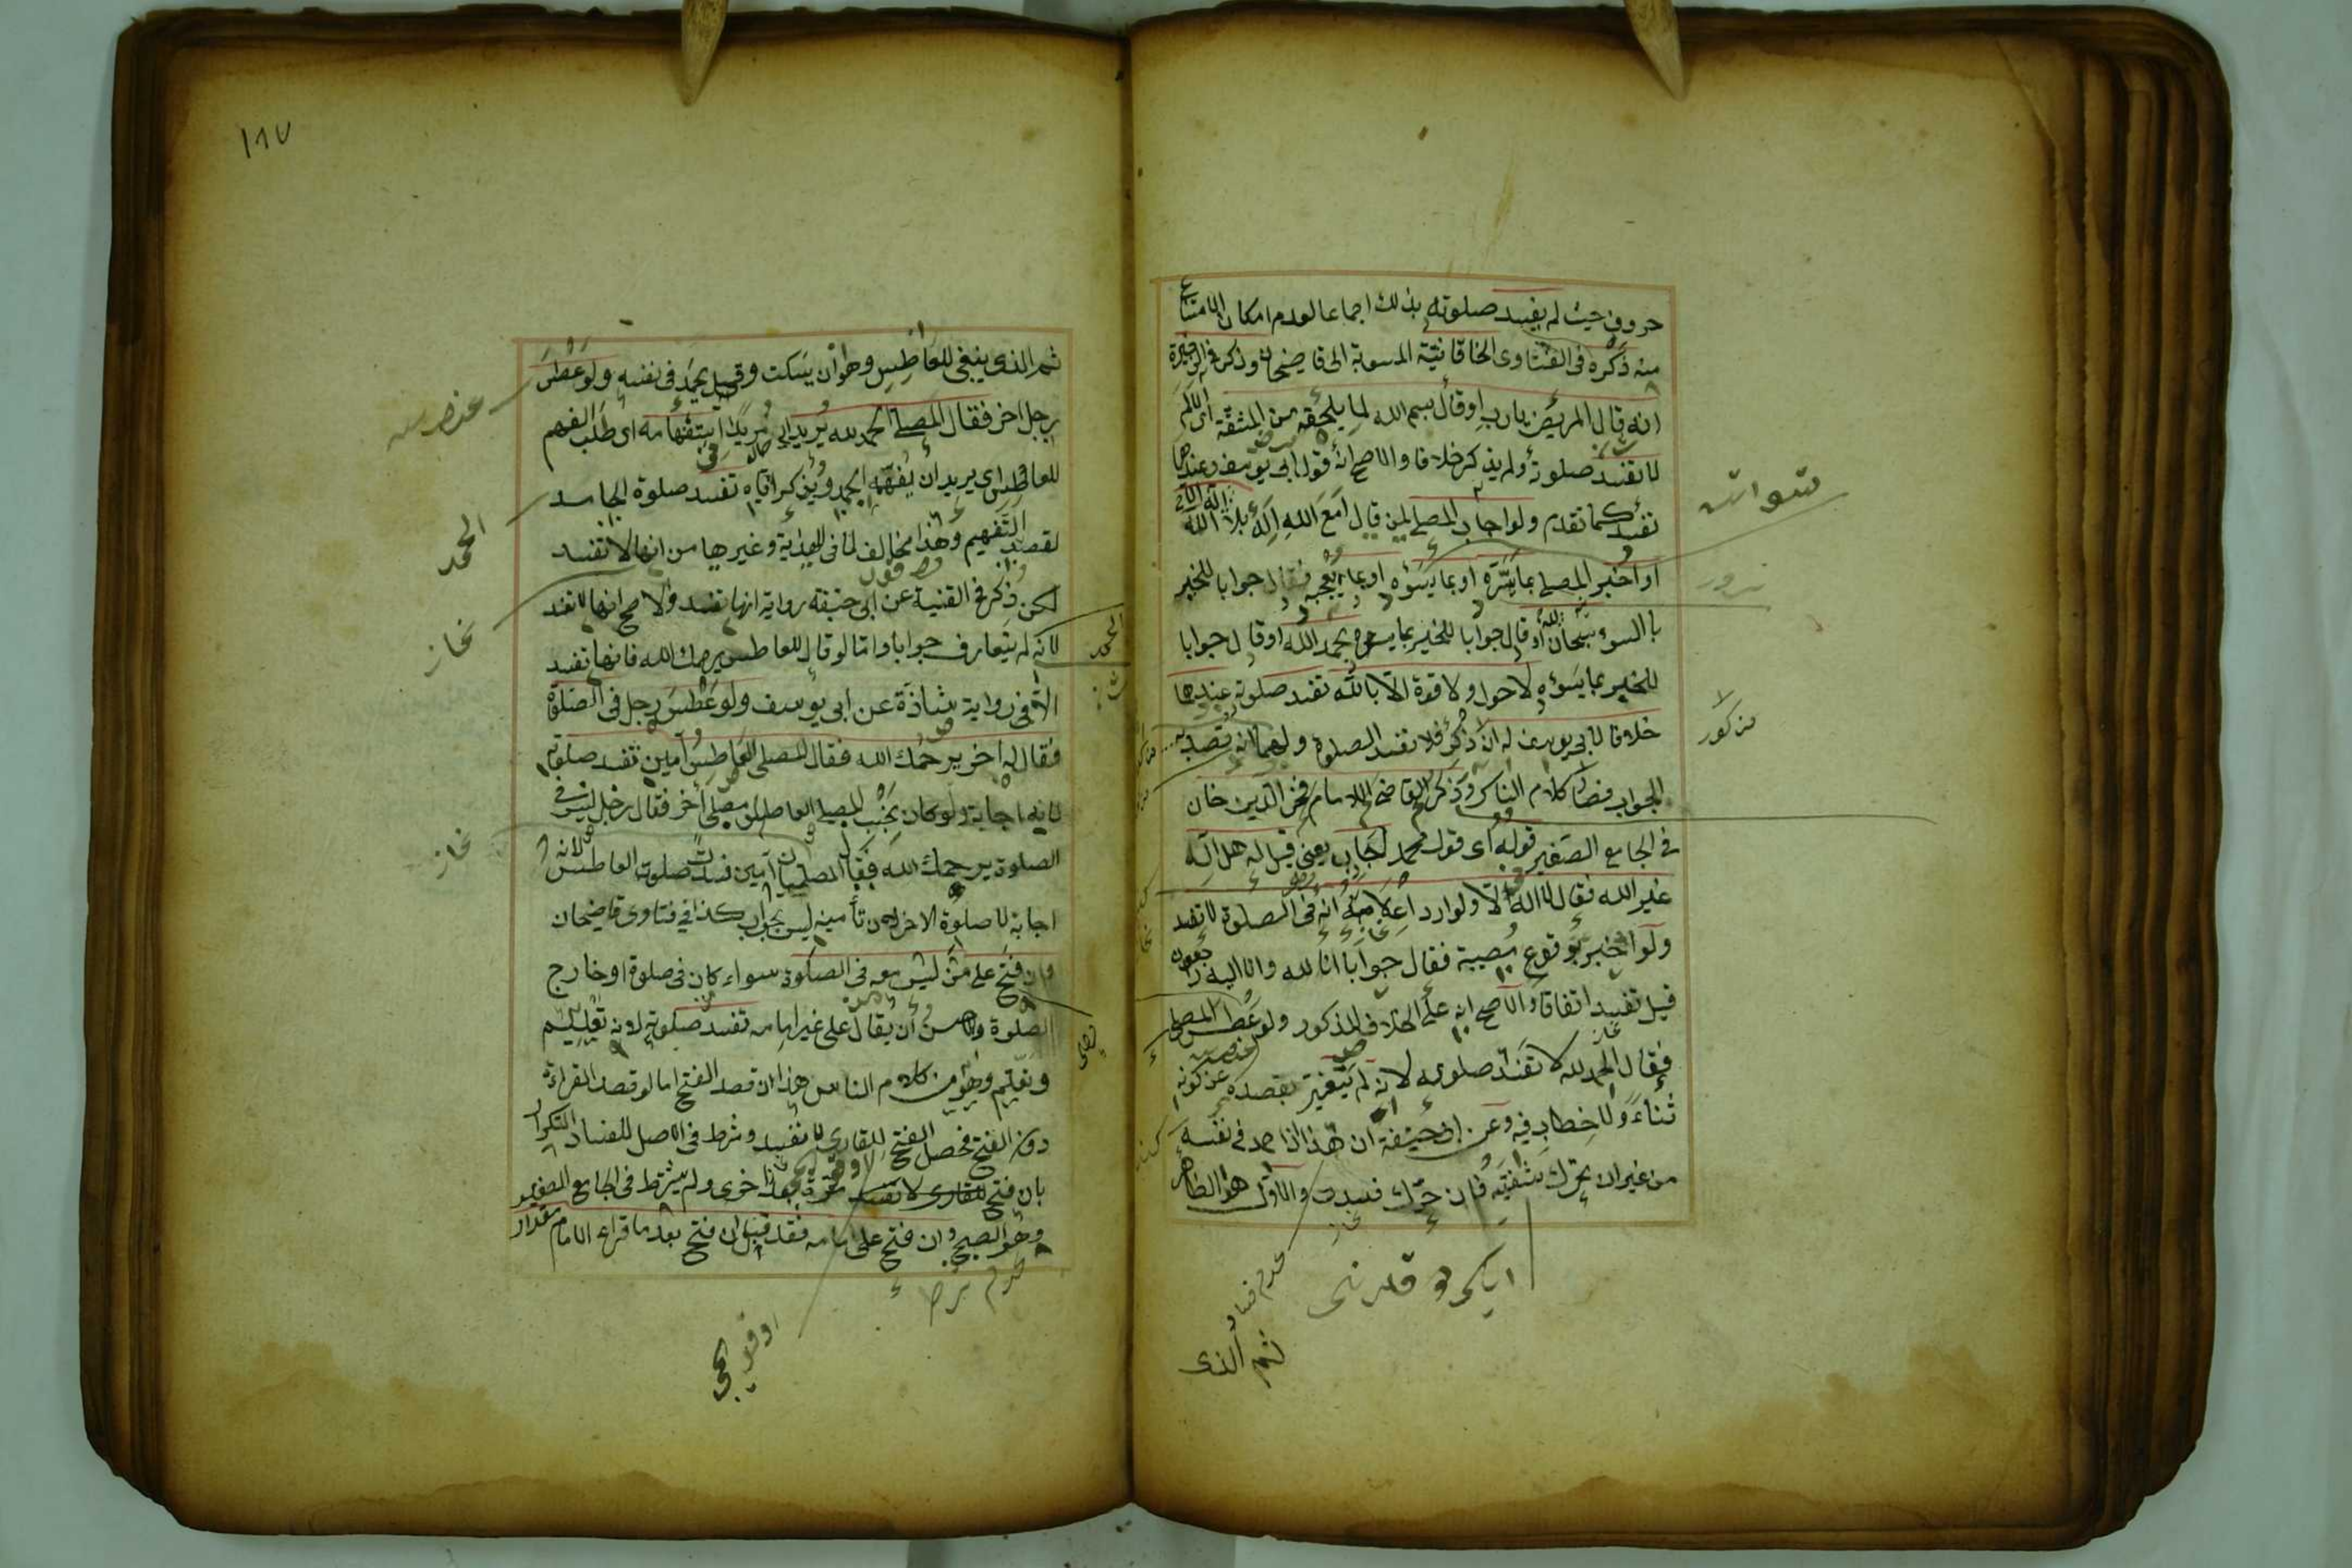 حروف حيث لم يفسد صلوته بذلك اجماعا لعدم امكان الامتناع
منه ذكره فى الفتاوى الخاقانية المنسوبة الى قاضيخان وذكر فى الذخيرة
انه قال المريض يارب اوقال بسم الله لما يلحقه من المشقة اى الالم
لا تفسد صلوته ولم يذكر خلافا والاصح انه قول ابى يوسف وعندهما
تفسد كما تقدم ولو اجاب المصلى لمن قال امع الله اله بلا اله الا الله
او اخبر المصلى بما يسره او بما يسؤه او بما يعجبه فقال جوابا للخبر
با السوء سبحان الله او قال جوابا للخبر بما يسره بحمد الله او قال جوابا
للخبر بما يسؤه لا حول ولا قوة الا بالله تفسد صلوته عندهما
خلافا لابى يوسف له ان ذكر فلا تفسد الصلوة ولهما انه قصد به
الجواب فصار كلام الناس وذكر القاضى الامام فخر الدين خان
فى الجامع الصغير قوله اى قول محمد اجاب يعنى قيل له هل اله
غير الله فقال لا اله الا ولو اراد اعلامه انه فى الصلوة لا تفسد
ولو اخبر بوقوع مصيبة فقال جوابا انا لله وانا اليه راجعون
قيل تفسد اتفاقا والاصح انه على الخلاف المذكور ولو عطس المصلى
فقال الحمد لله لا تفسد صلوته لانه لم يتغير بقصده عن كونه
ثناء ولا خطاب فيه وعن ابى حنيفة ان هذا اذا حمد فى نفسه
من غير ان يحرك شفتيه فان حرك فسدت والاول هو الظاهر
ثم الذى
مذكور
١٨٧
ثم الذى ينبغى للعاطس وهو ان يسكت وقيل يحمد فى نفسه ولو عطس
رجل اخر فقال المصلى الحمد لله يريد استفهامه اى طلب الفهم
للعاطس اى يريد ان يفهمه الحمد ويذكر اياه تفسد صلوة الحامد
لقصد التفهيم وهذا مخالف لما فى الهداية وغيرها من انها لا تفسد
لكن ذكر فى القنية عن ابى حنيفة رواية انها تفسد والاصح انها لا تفسد
لانه لم يتعارف جوابا واما لو قال للعاطس يرحمك الله فانها تفسد
الا فى رواية شاذة عن ابى يوسف ولو عطس رجل فى الصلوة
فقال له اخر يرحمك الله فقال المصلى العاطس آمين تفسد صلوته
لانه اجابة ولو كان بجنب المصلى العاطس مصلى آخر فقال رجل ليس فى
الصلوة يرحمك الله فقال المصليان آمين فسدت صلوة العاطس لانه
اجابة لا صلوة الاخر لان تأمينه ليس بجواب كذا فى فتاوى قاضيخان
وان فتح على من ليس معه فى الصلوة سواء كان فى صلوة او خارج
الصلوة والاحسن ان يقال على غير امامه تفسد صلوته لانه تعليم
وتعلم وهو من كلام الناس هذا ان قصد الفتح اما لو قصد القراءة
دون الفتح فحصل الفتح للقارى لا تفسد وشرط فى الاصل للفساد التكرار
بان فتح للقارى مرة بعد اخرى ولم يشترط فى الجامع الصغير
وهو الصحيح وان فتح على امامه فقد قيل ان فتح بعد ما قراء الامام مقدار
الحمد